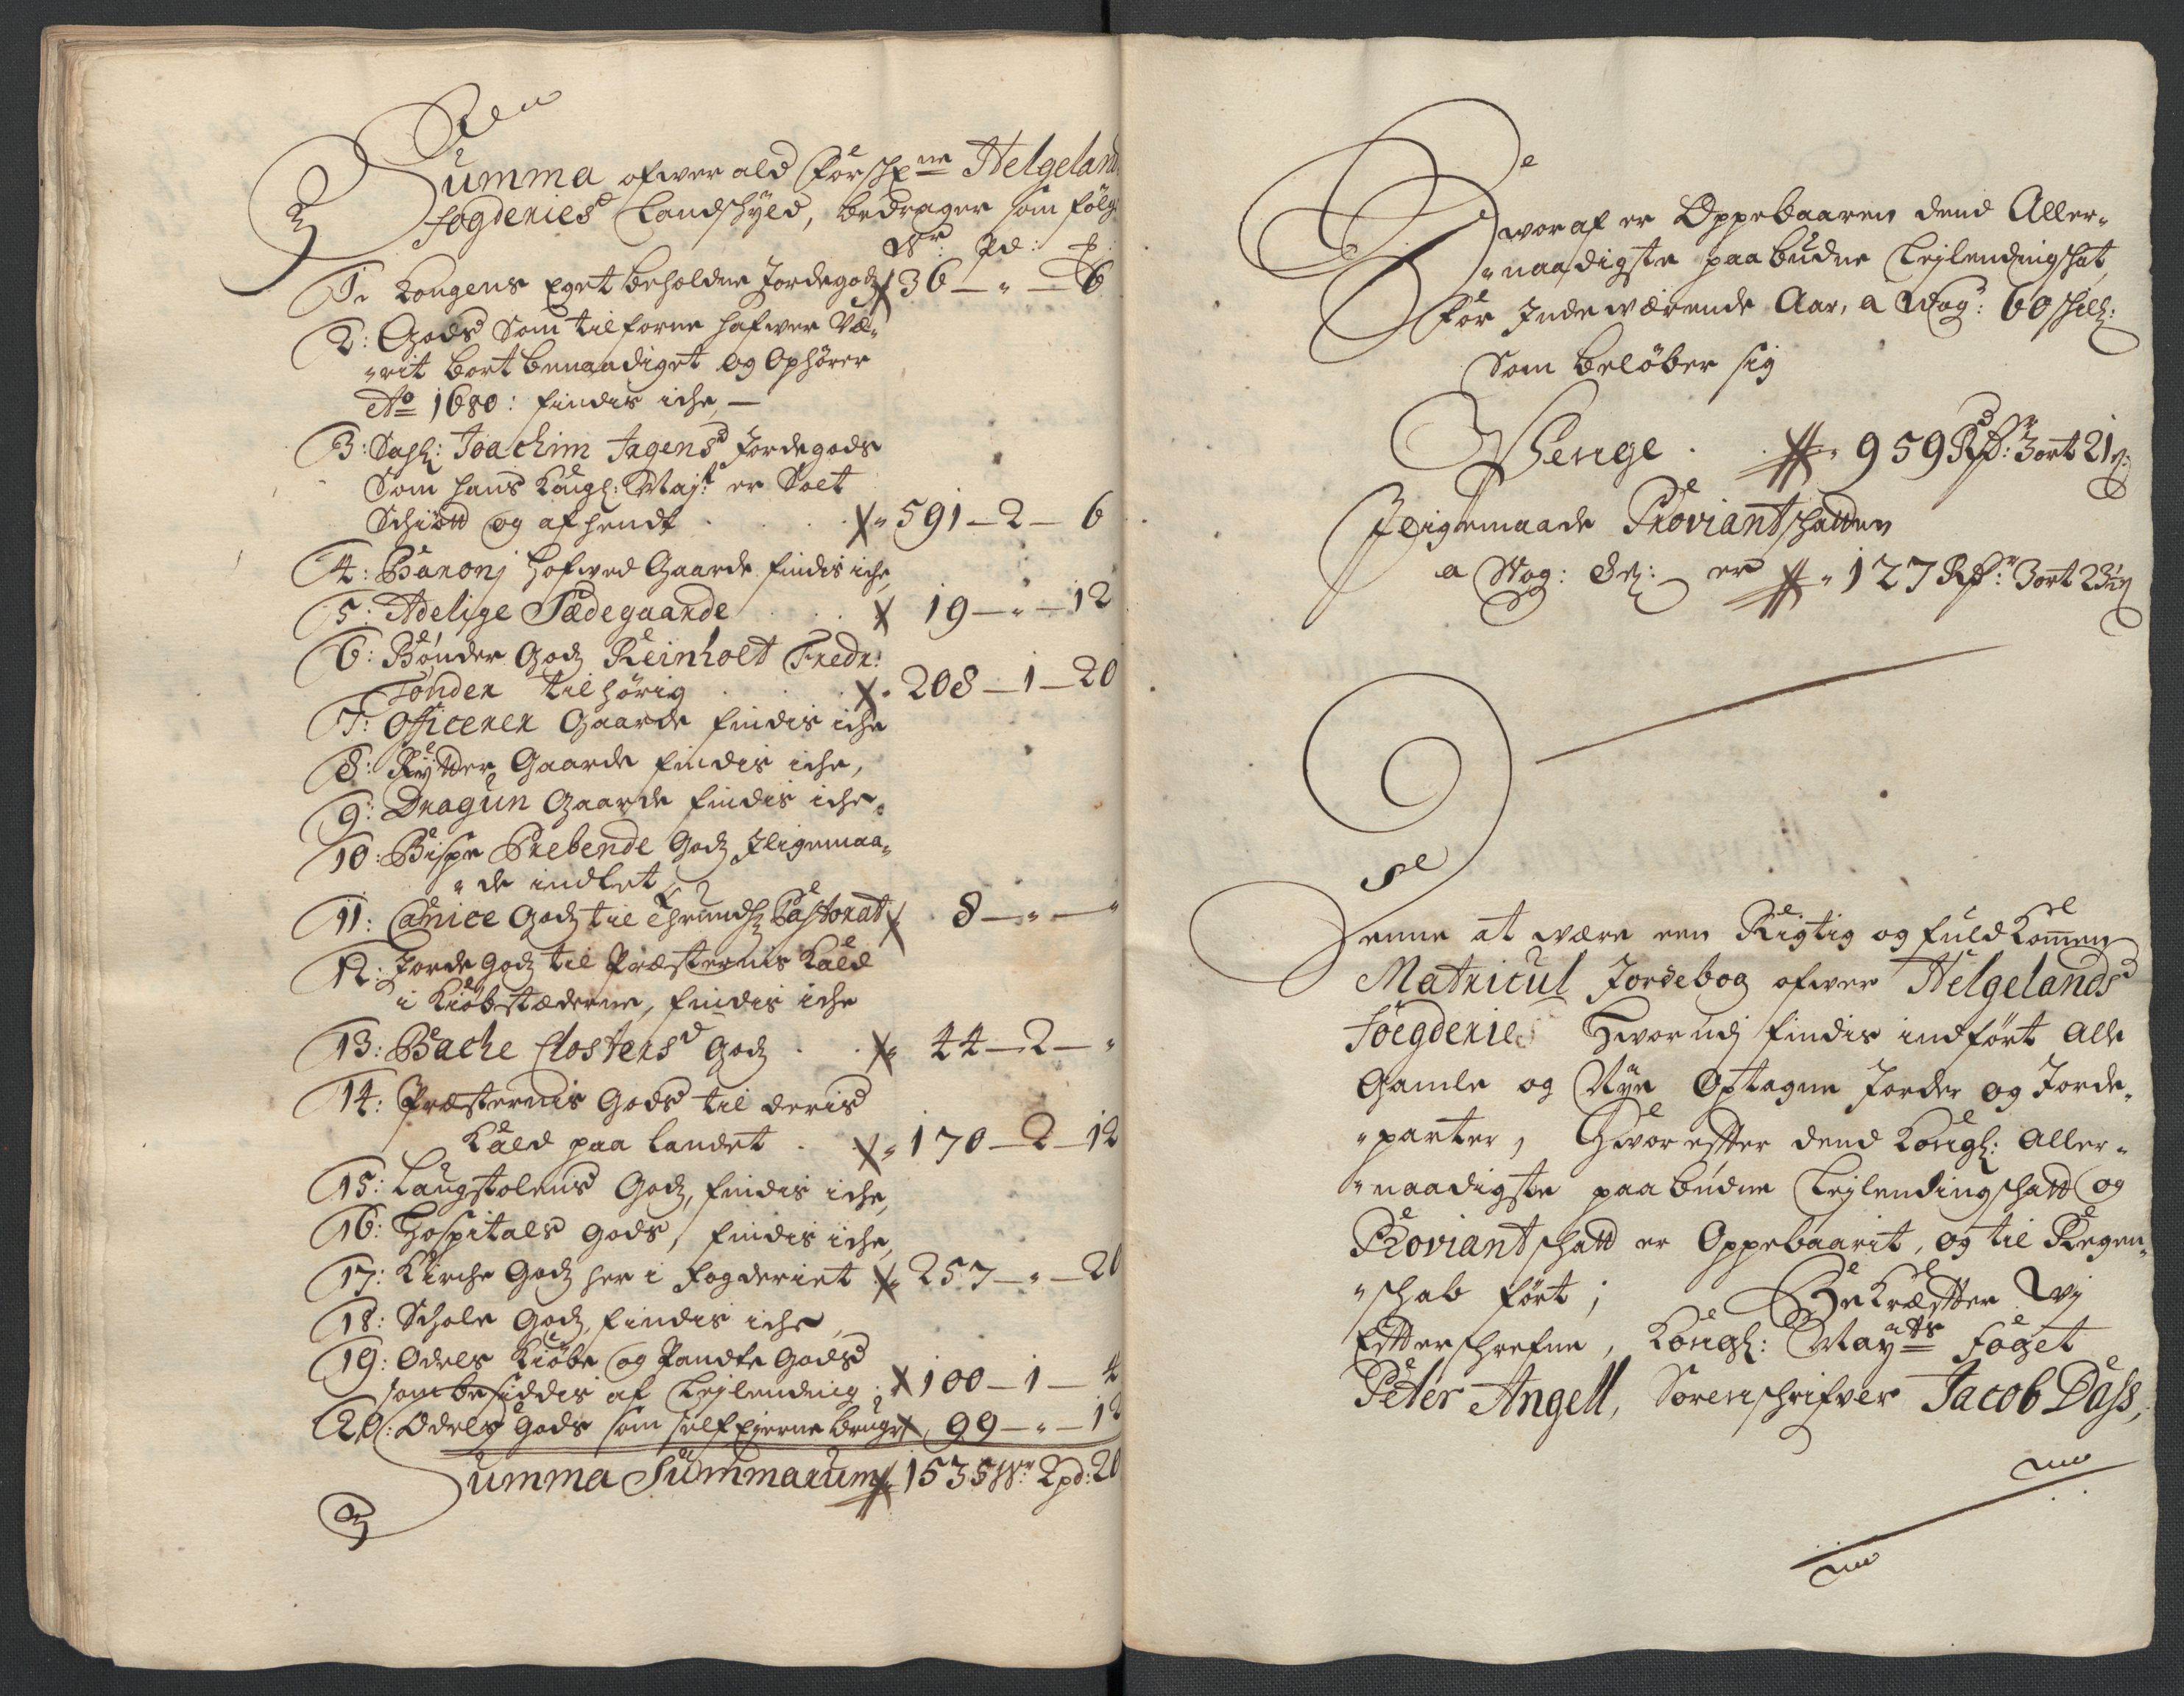 Summa ofwer ald Forschrne Helgelands
fogderies Landschyld, bedrager som følg:
Wr: Pd: #:
1: Kongens Eget beholdne Jordegodz 36 — " — 6
2: Gods Som tilforne hafwer Væ„
„rit bort benaadiget og Ophører
Ao 1680: findis iche —
3: Sahl: Joachim Jrgens Jordegods
Som hans Kongl: Mayt: er Solt
Schiött og afhendt 591 — 2 — 6
4: Baronj Hofwed Gaarde findis iche,
5: Adelige Sædegaarde 19 — " — 12
6: Bønder Godz Reinholt Fredr:
Tønder tilhørig 208 — 1 — 20
7: Officerer Gaarde findis iche
8: Rytter Gaarde findis iche,
9: Dragun Gaarde findis iche„
10: Bispe Prebende Godz Jligemaa„
„de indtet
11: Canice Godz til Pastorat 8 — " — "
12: Jorde Godz til Præsternis Kald
i Kiøbstæderne, findis iche
13: Bache Closters Godz 44 — 2 — "
14: Præsternis Gods til deris
Kald paa Landet 170 — 2 — 12
15: Laugstolens Godz, findis iche,
16: Hospitals Gods, findis iche,
17: Kirche Godz her i fogderiet 257 — " — 20
18: Schole Godz, findis iche,
19: Odels Kiøbe og Pandte Gods
som besiddis af Lejlending 100 — 1 — 4
20: Odels Gods som self Ejerne bruger 99 — " — 12
Summa Summarum 1535 Wr 2 pd: 20
Hworaf er Oppebaaren dend Aller„
„naadigste paabudne Lejlendingschat,
For Inde wærende Aar, a Wog: 60 schill:
Som beløber sig
Penge 959 Rdr: 3 ort 21 s:
Jligemaade Proviantschatten
a Wog: 8 s: er 127 Rdr: 3 ort 23 s
Denne at være een Rigtig og fuldkommen
Matricul Jordebog ofwer Helgelands
Foegderie Hworudj findis indført Alle
Gamle og Nye Optagne Jorder og Jorde„
„parter, Hworefter dend Kongl: Aller„
„naadigste paabudne Lejlendingschatt og
Proviantschatt er Oppebaarit, og til Regen„
„schab ført; Bekræfter Wj
Efterschrefne, Kongl: Mayts Foget
Peter Angell, Sorenschrifver Jacob Dass,